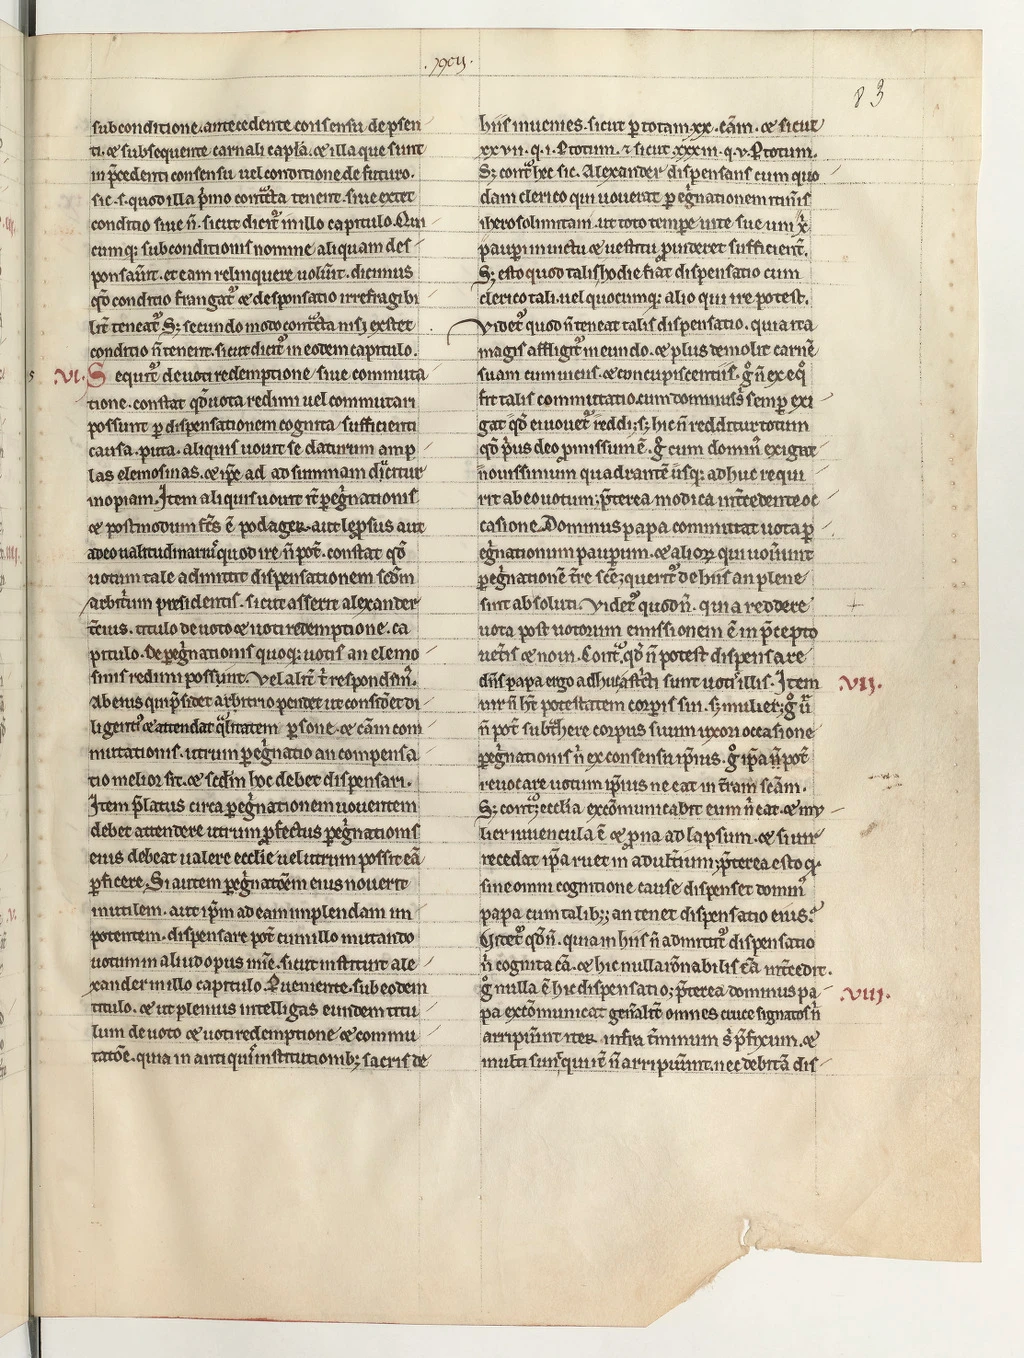 .xcij.
83
sub conditione. antecedente consensu de psen
ti. & subsequente carnali copla. & illa que sunt
in pcedenti consensu uel conditione de futuro.
sic. s. quod illa pimo contcta tenent. siue extet
conditio siue n̄. sicut dicit᷑ in illo capitulo. Qui
cumq; sub conditionis nomine aliquam des
ponsauīt. et eam relinquere uoluīt. dicimus
qd conditio frangat᷑ & desponsatio irrefragibi
lit̄ teneat᷑. S; secundo modo contcta nisi exstet
conditio n̄ tenent. sicut dicit᷑ in eodem capitulo.
.VI. Sequit᷑ de uoti redemptione siue commuta
tione. constat qd uota redimi uel commutari
possunt p dispensationem cognita sufficienti
causa. puta. aliquis uouit se daturum amp
las elemosinas. & ipse ad ad summam
inopiam. Item aliquis uouit it̄ pegnationis
& postmodum fcs ē podager. aut lepsus aut
adeo ualitudinarius quod ire n̄ pot̄. constat qd
uotum tale admittit dispensationem scdm
arbitium presidentis. sicut asserit alexander
tcius. titulo de uoto & uoti redemptione. ca
pitulo. De pegnationis quoq; uotis an elemo
sinis redimi possunt. Vel alit̄ t̄ respondsm̄.
Ab eius qui psidet arbitrio pendet ut considet di
ligent᷑ & attendat qlitatem psone. & cam com
mutationis. utrum pegnatio an compensa
tio melior sit. & scdm hoc debet dispensari.
Item platus circa pegnationem uouentem
debet attendere utrum pfectus pegnationis
eius debeat ualere ecclie uel utrum possit eā
pficere. Si autem pegnatoem eius nouerit
inutilem. aut ipm ad eam implendam im
potentem. dispensare pot̄ cum illo mutando
uotum in aliud opus mie. sicut instituit ale
xander in illo capitulo. Quenienti. sub eodem
titulo. & ut plenius intelligas eundem titu
lum de uoto & uoti redemptione & commu
tatōe. quia in antiquis institutionib; sacris de
hiis inuenies. sicut p totam .xx. cām. & sicut
xxvii. q. i. Ptotum. & sicut xxxiii. q. v. Ptotum.
S; cont hec sic. Alexander dispensans cum quo
dam clerico qui uouerat pegnationem
iherosolimitam. ut toto tempe uite sue
paupi in uictu & uestitu puideret sufficient᷑.
S; esto quod talis hodie fiat dispensatio cum
clerico tali. uel quocumq; alio qui ire potest.
Videt᷑ quod n̄ teneat talis dispensatio. quia ita
magis affligit᷑ in eundo. & plus demolit carnē
suam cum uiciis & concupiscentiis. g n̄ ex eq
fit talis commutatio. cum dominus semp exi
gat qd ei uouet᷑ reddi; s; hic n̄ redditur totum
qd pus deo pmissum ē. g cum domin exigat
nouissimum quadrantē usq; adhuc requi
rit ab eo uotum; pterea modica intcedente oc
casione. Dominus papa commutat uota p
egnationum paupum. & alioꝝ qui uouunt
pegnationē tre scē; querit᷑ de hiis an plene
sint absoluti. Videt᷑ quod n̄. quia reddere
uota post uotorum emissionem ē in pcepto
uetis & noui. Cont. qd n̄ potest dispensare
dn̄s papa ergo adhuc astcti sunt uotis illis. Item .VII.
uir n̄ ht potestatem corpis sui. s; mulier; g ū
n̄ pot subthere corpus suum uxori occasione
pegnationis n̄ ex consensu ipius. g ipa n̄ pot̄
reuocare uotum ipius ne eat in tram scam.
S; cont; ecclia excomunicabit eum n̄ eat. & mu
lier iuuencula ē & pna ad lapsum. & si uir
recedat ipa ruet in adultium; pterea esto q
sine omni cognitione cause dispenset domin
papa cum talib;; an tenet dispensatio eius?
Videt᷑ qd n̄. quia in hiis n̄ admittit᷑ dispensatio
n̄ cognita ca. & hic nulla rōnabilis ca intcedit.
g nulla ē hic dispensatio; pterea dominus pa .VIII.
pa excomunicat genalit̄ omnes cruce signatos n̄
arripiunt iter infra tminum s pfixum. &
multi sunt qui it̄ n̄ arripiunt. nec debitā dis